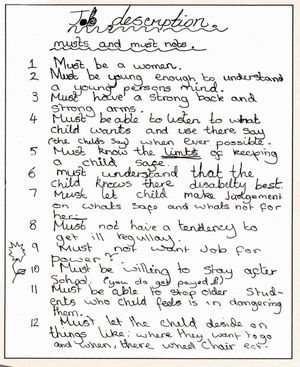 Job description
musts and must nots.
1 Must be a women.
2 Must be young enough to understand
a young persons mind.
3 Must have a strong back and
strong arms.
4 Must be able to listen to what
child wants and use there say
(the childs say) when ever possible.
5 Must know the limits of keeping
a child safe.
6 must understand that the
child knows there disabilty best.
7 Must let child make judgement
on whats safe and whats not for
her.
8 Must not have a tendency to
get ill regullay.
9 Must not want Job for
power?
10 Must be willing to stay after
School. (you do get payed!)
11 Must be able to stop older Stud-
ents who child feels is in dangering
them.
12 Must let the child deside on
things like: where they want to go
and when, there wheel chair ect.